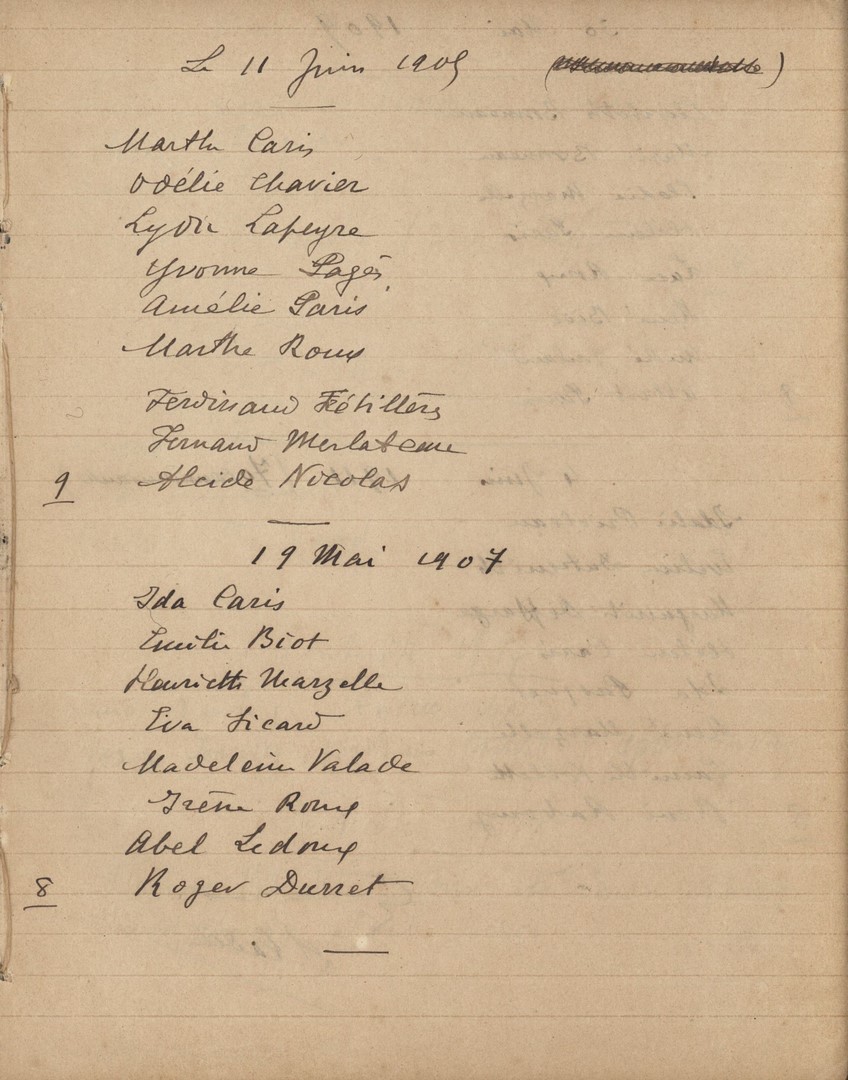 Le 11 Juin 1905
Marthe Caris
Odélie Chavier
Lydie Lapeyre
Yvonne Pagès
Amélie Paris
Marthe Roux
Ferdinand Fétillère
Fernand Merlateau
9 Alcide Nicolas
19 Mai 1907
Ida Caris
Emilie Biot
Henriette Marzelle
Eva Sicard
Madeleine Valade
Irène Roux
Abel Ledoux
8 Roger Durret